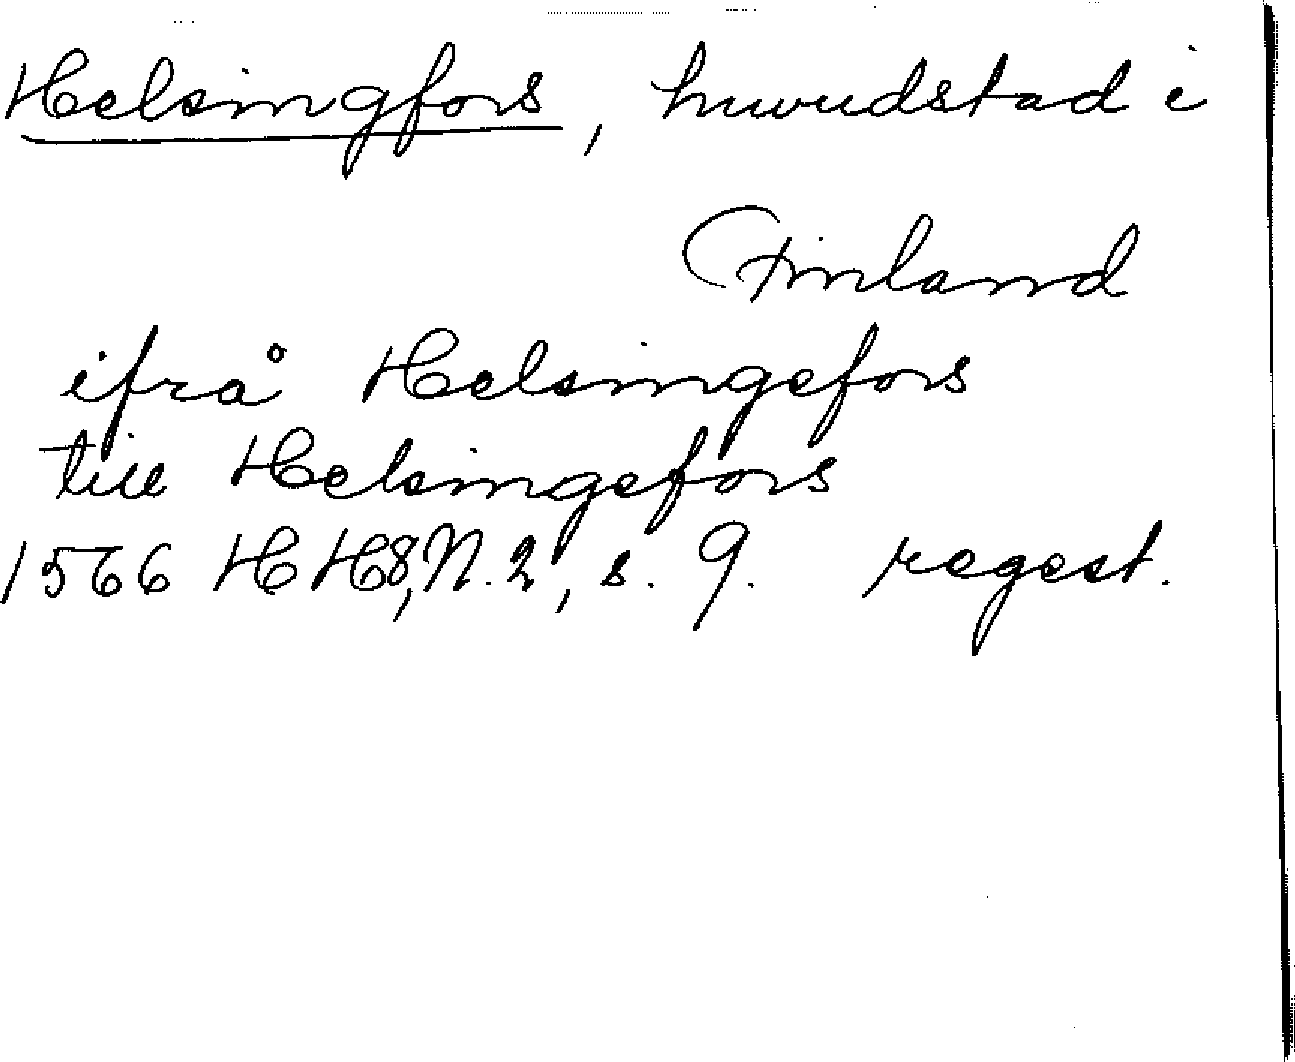 Helsingfors, huvudstad i
Finland
ifrå Helsingefors
till Helsingefors
1566 HH8, N. 2, s. 9. regest.